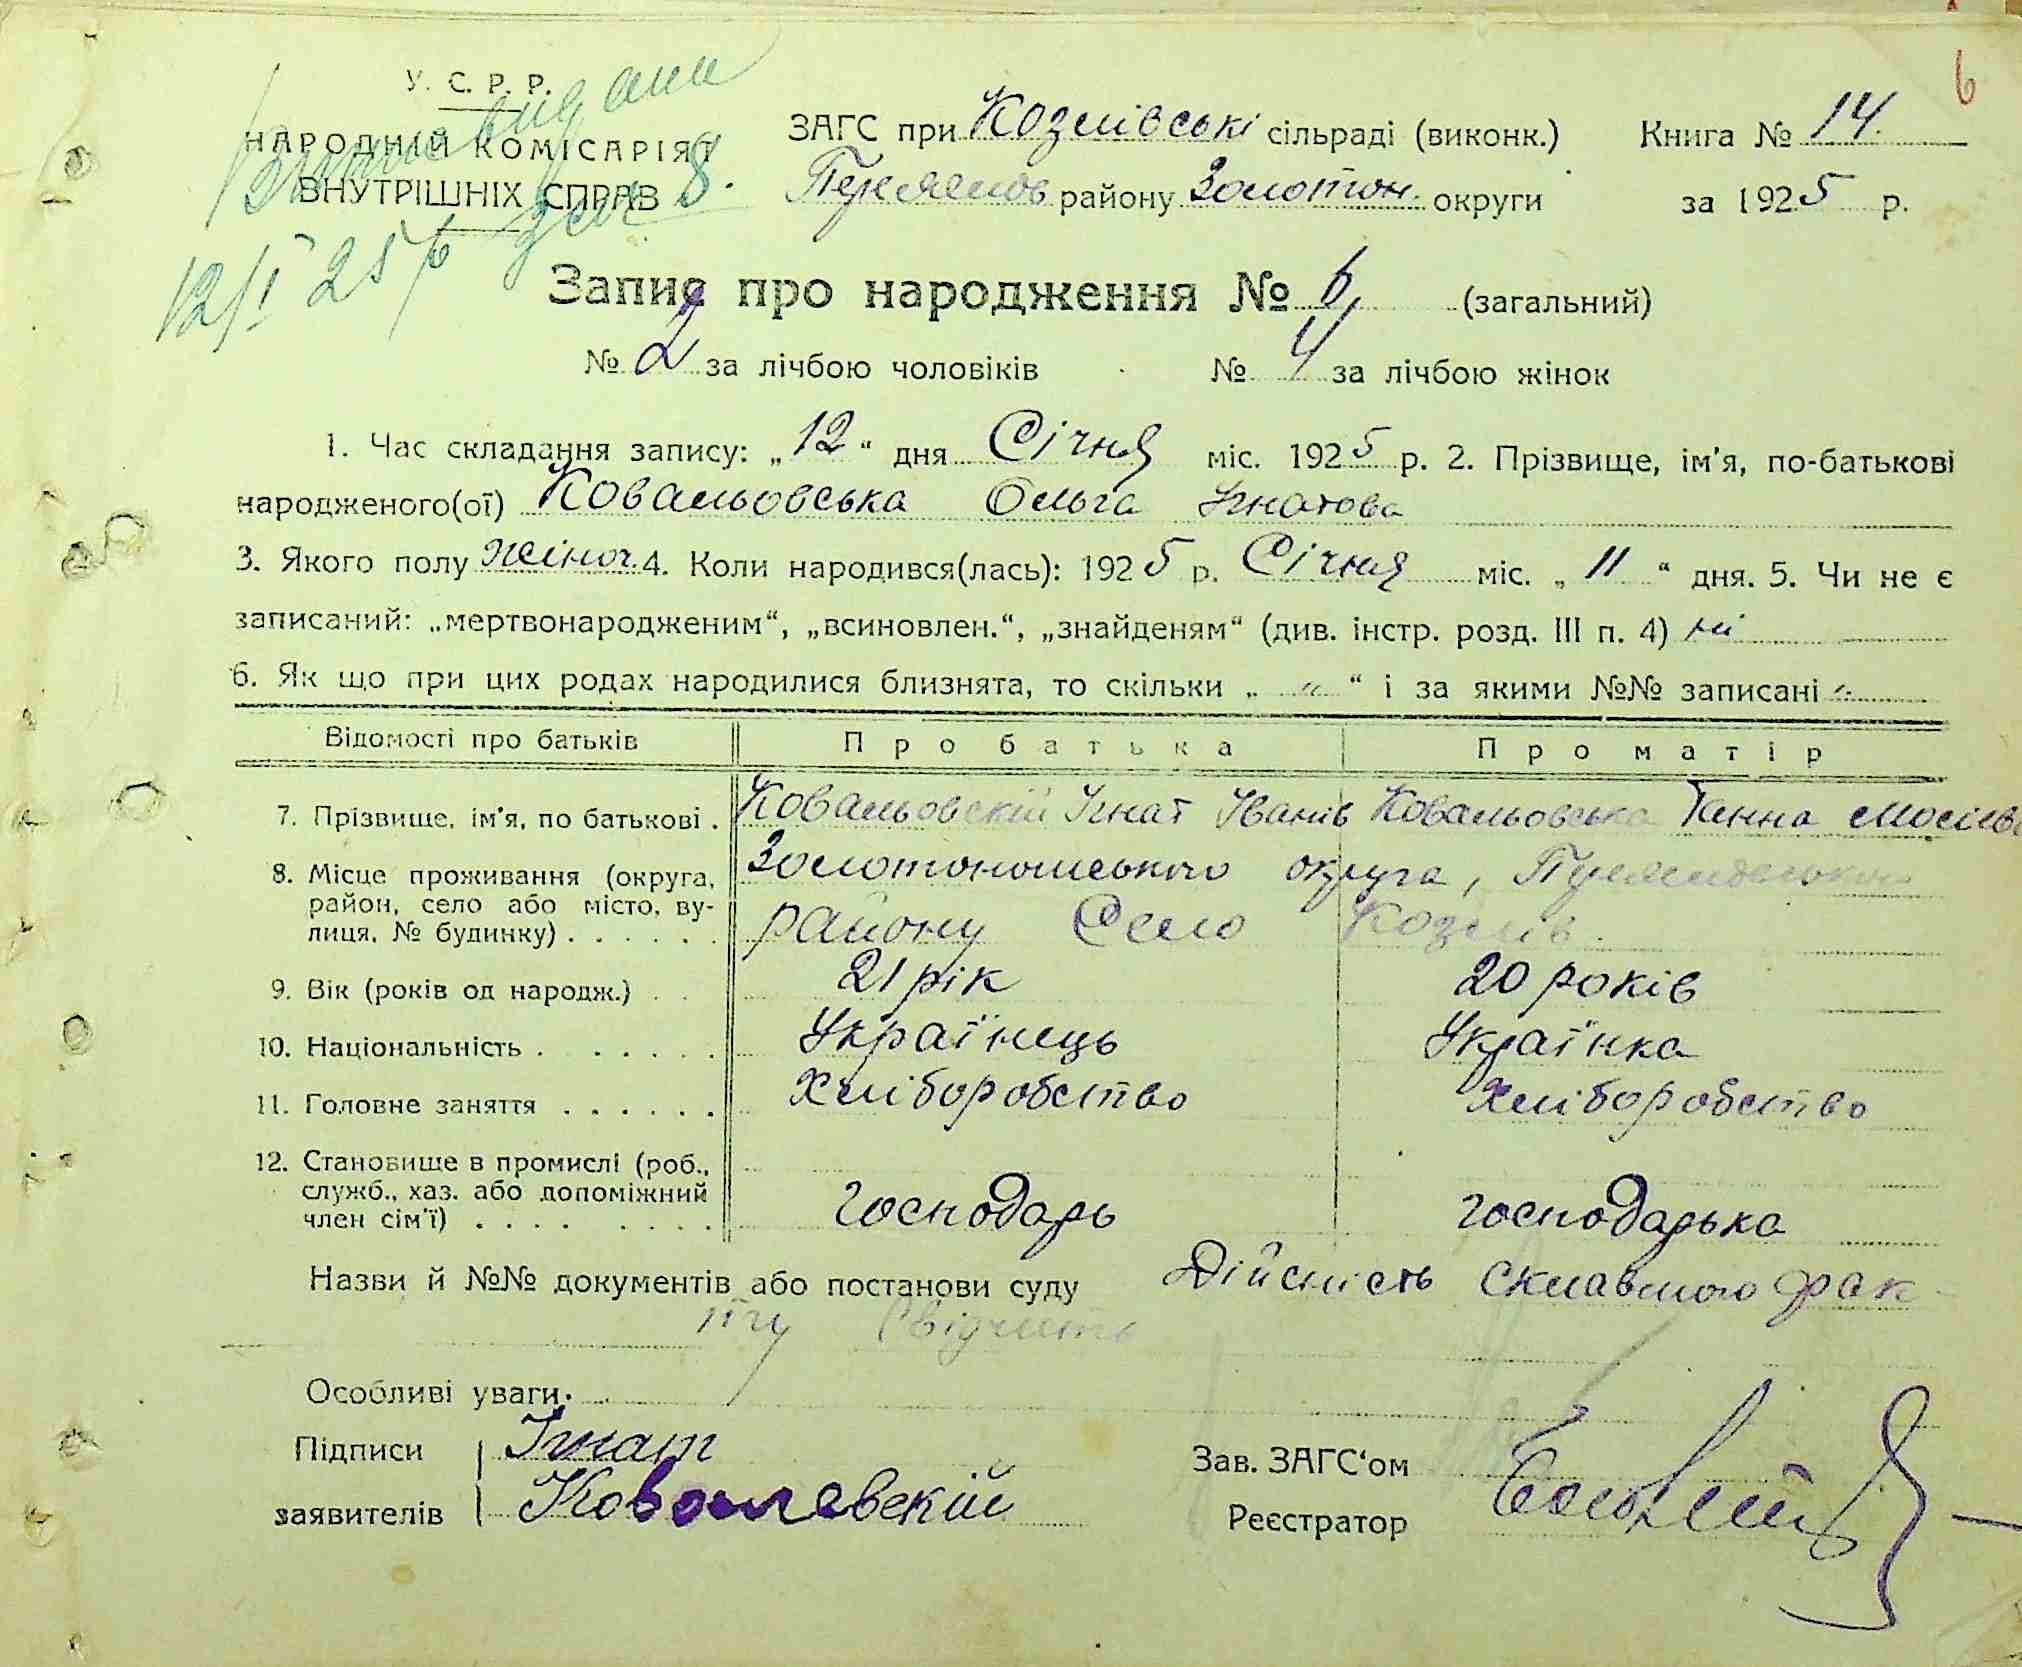 6
У. С. Р. Р.
НАРОДНІЙ КОМІСАРІЯТ
ВНУТРІШНІХ СПРАВ
видана
8.
12/I 25 р
ЗАГС при Козлівські сільраді (виконк.) Книга № 14.
району Золотон. округи за 1925 р.
Запис про народження № 6 (загальний)
№ 2 за лічбою чоловіків № 4 за лічбою жінок
1. Час складання запису: „12“ дня Січня міс. 1925 р. 2. Прізвище, ім'я, по-батькові
народженого(ої) Ковальовська Ольга Ігнатова
3. Якого полу жіноч. 4. Коли народився(лась): 1925 р. Січня міс. „11“ дня. 5. Чи не є
записаний: „мертвонародженим“, „всиновлен.“, „знайденям“ (див. інстр. розд. III п. 4) ні
6. Як що при цих родах народилися близнята, то скільки „ „ “ і за якими №№ записані „
Відомості про батьків Про батька Про матір
7. Прізвище, ім'я, по батькові . Ковальовскій Ігнат Іванів Ковальовська Ганна
8. Місце проживання (округа, район, село або місто, вулиця, № будинку) . . . . . . Золотоношського округа,
району Село Козлів.
9. Вік (років од народж.) . . 21 рік 20 років
10. Національність . . . . . . . Українець Українка
11. Головне заняття . . . . . . Хліборобство Хліборобство
12. Становище в промислі (роб., служб., хаз. або допоміжний член сім'ї) . . . . . . . . господарь господарька
Назви й №№ документів або постанови суду Дійсність склавшого фак
ту Свідчить
Особливі уваги.
Підписи Ігнат
заявителів Ковалевскій
Зав. ЗАГС'ом
Реєстратор